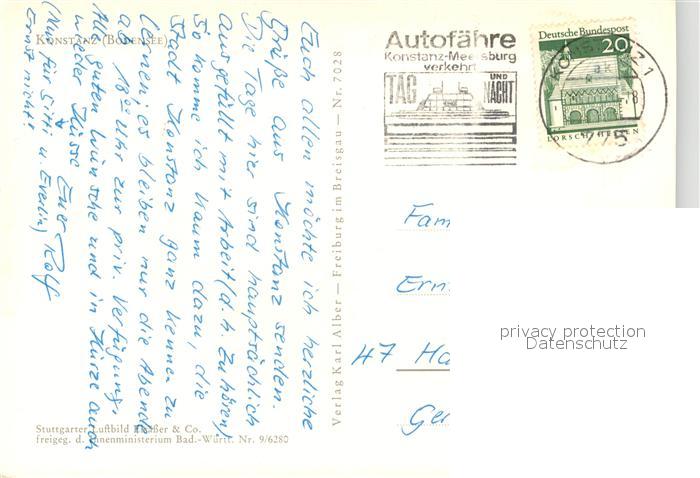 KONSTANZ (BODENSEE)
Euch allen möchte ich herzliche
Grüße aus Konstanz senden.
Die Tage hier sind hauptsächlich
ausgefüllt mit Arbeit (d. h. Zuhören)
So komme ich kaum dazu, die
Stadt Konstanz ganz kennen zu
lernen; es bleiben nur die Abende
ab 18 00 Uhr zur priv. Verfügung.
Alle guten Wünsche und in Kürze auch
wieder Küsse Euer Rolf
(Nur für Sitti u. Evelin)
Ernst nicht!
Stuttgarter Luftbild Elsäßer & Co.
freigeg. d. Innenministerium Bad.-Württ. Nr. 9/6280
Verlag Karl Alber — Freiburg im Breisgau — Nr. 7028
Autofähre
Konstanz-Meersburg
verkehrt
TAG UND NACHT
Deutsche Bundespost
20
LORSCH/HESSEN
KONSTANZ 1
775
Fam
Ern
47 Ha
Ger
privacy protection
Datenschutz